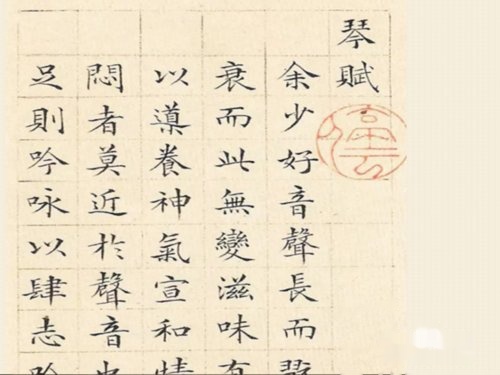 琴賦
余少好音聲長而翫
衰而此無變滋味有
以導養神氣宣和情
悶者莫近於聲音也
足則吟咏以肆志吟